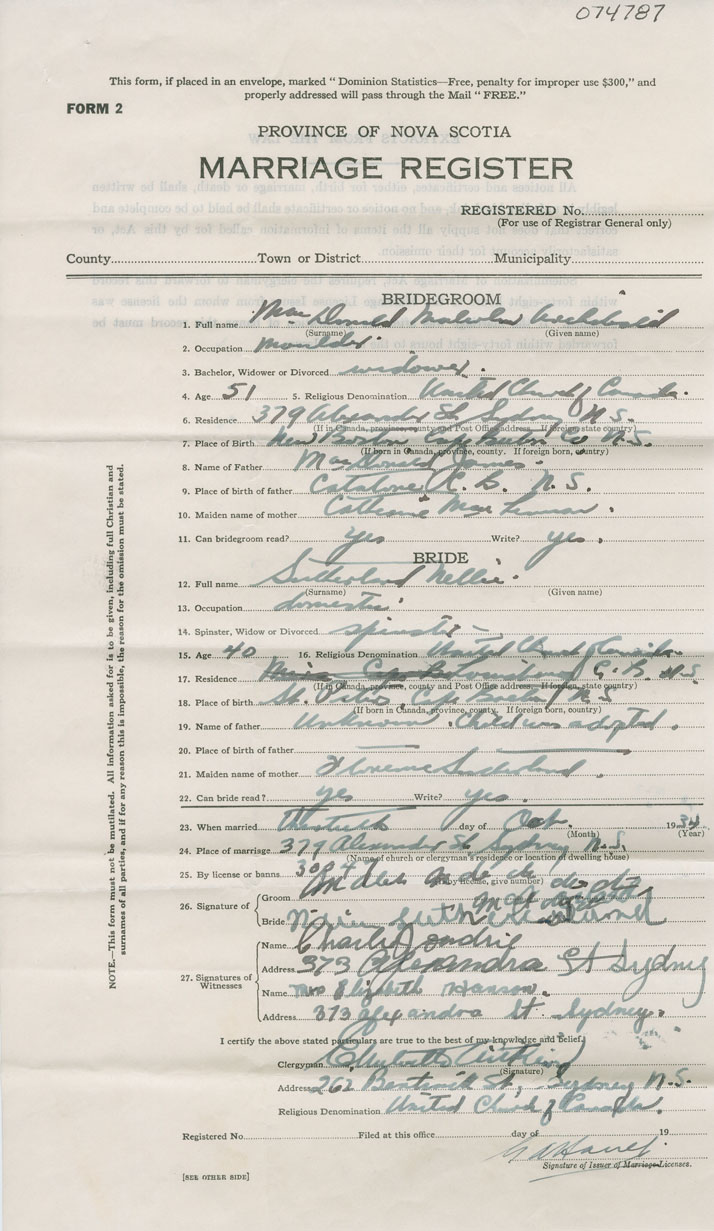 074787
This form, if placed in an envelope, marked " Dominion Statistics—Free, penalty for improper use $300," and
properly addressed will pass through the Mail " FREE."
FORM 2
PROVINCE OF NOVA SCOTIA
MARRIAGE REGISTER
REGISTERED No.
(For use of Registrar General only)
County Town or District Municipality
BRIDEGROOM
1. Full name MacDonald Malcolm Archibald
(Surname) (Given name)
2. Occupation moulder
3. Bachelor, Widower or Divorced widower.
4. Age 51 5. Religious Denomination United Church of Canada.
6. Residence 379 Alexandra St. Sydney N.S.
(If in Canada, province, county and Post Office address. If foreign state country)
7. Place of Birth New Boston Cape Breton Co N.S.
(If born in Canada, province, county. If foreign born, country)
8. Name of Father MacDonald James.
9. Place of birth of father Catalone C. B. N. S.
10. Maiden name of mother Catherine MacLennan.
11. Can bridegroom read? yes Write? yes.
BRIDE
12. Full name Sutherland Nellie.
(Surname) (Given name)
13. Occupation domestic
14. Spinster, Widow or Divorced spinster
15. Age 40 16. Religious Denomination United Church of Canada.
17. Residence C. B. N.S
(If in Canada, province, county and Post Office address. If foreign, state country)
18. Place of birth N.S
(If born in Canada, province, county. If foreign born, country)
19. Name of father Unknown. Child was adopted.
20. Place of birth of father
21. Maiden name of mother Florence Sutherland.
22. Can bride read? yes Write? yes.
23. When married day of Oct. 1934
(Month) (Year)
24. Place of marriage 379 Alexandra St Sydney N.S.
(Name of church or clergyman's residence or location of dwelling house)
25. By license or banns
(If by license, give number)
26. Signature of
Groom
Bride
27. Signatures of Witnesses
Name Charlie
Address 373 Alexandra St Sydney
Name Mrs Elizabeth Hanson.
Address 373 Alexandra St Sydney.
I certify the above stated particulars are true to the best of my knowledge and belief.
Clergyman
(Signature)
Address 262 Bentinck St, Sydney N.S.
Religious Denomination United Church of Canada.
Registered No. Filed at this office day of 19
Signature of Issuer of Marriage Licenses.
[SEE OTHER SIDE]
NOTE.—This form must not be mutilated. All information asked for is to be given, including full Christian and
surnames of all parties, and if for any reason this is impossible, the reason for the omission must be stated.